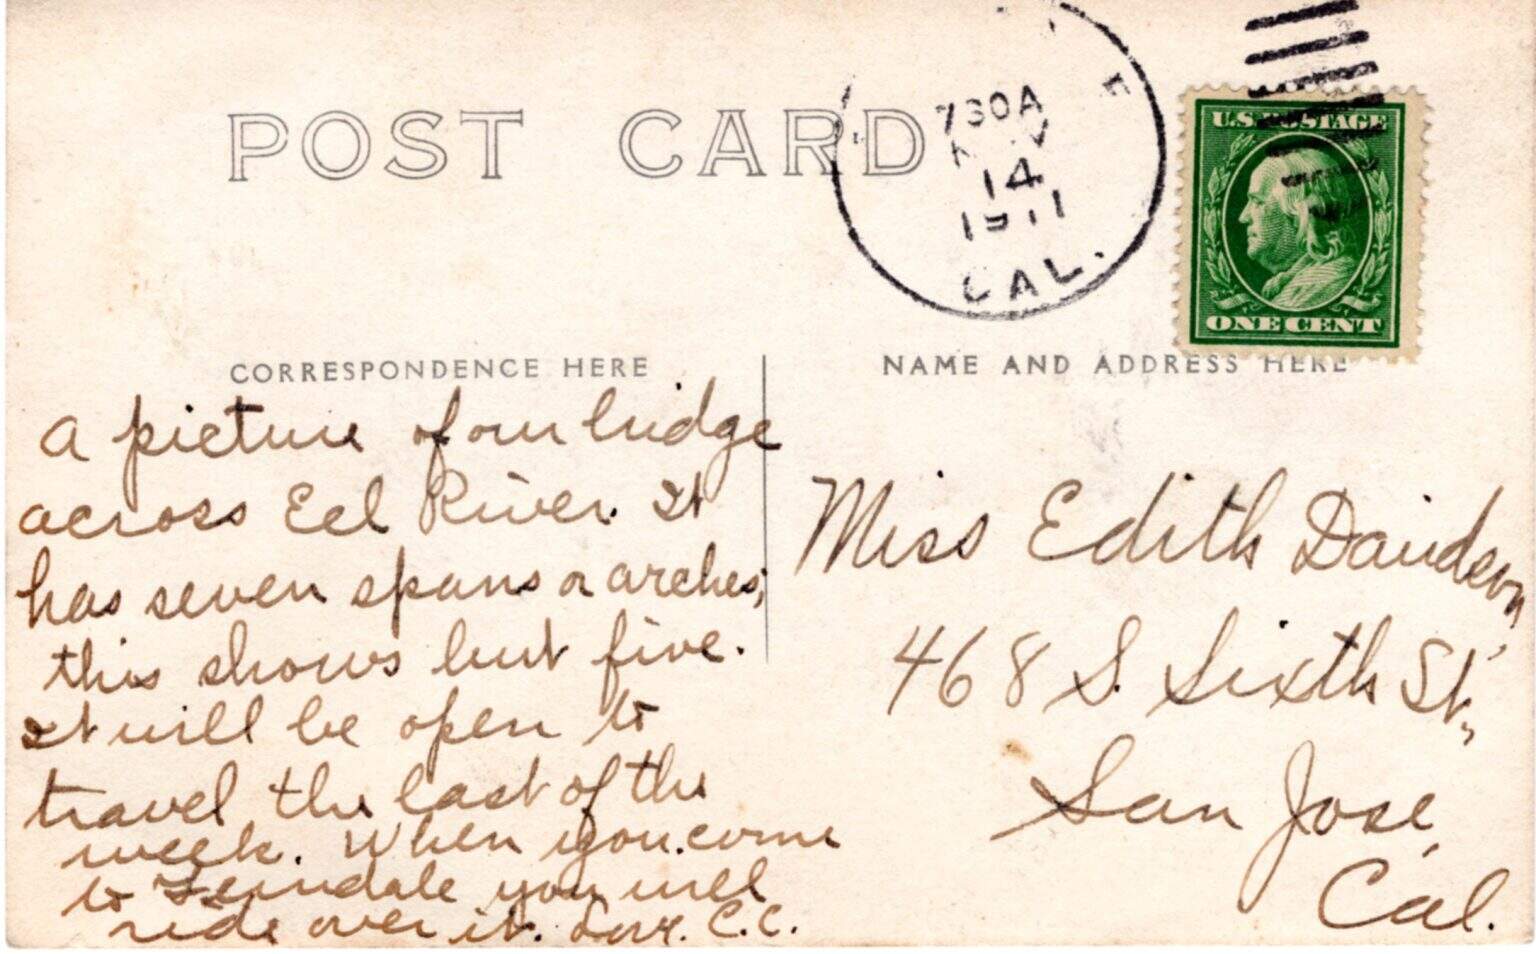 POST CARD
730A
NOV
14
1911
CAL.
U.S. POSTAGE
ONE CENT
CORRESPONDENCE HERE
NAME AND ADDRESS HERE
A picture of our bridge
across Eel River. It
has seven spans or arches;
this shows but five.
It will be open to
travel the last of the
week. When you come
to Ferndale you will
ride over it. Love. C.C.
Miss Edith Davidson,
468 S. Sixth St.,
San Jose,
Cal.